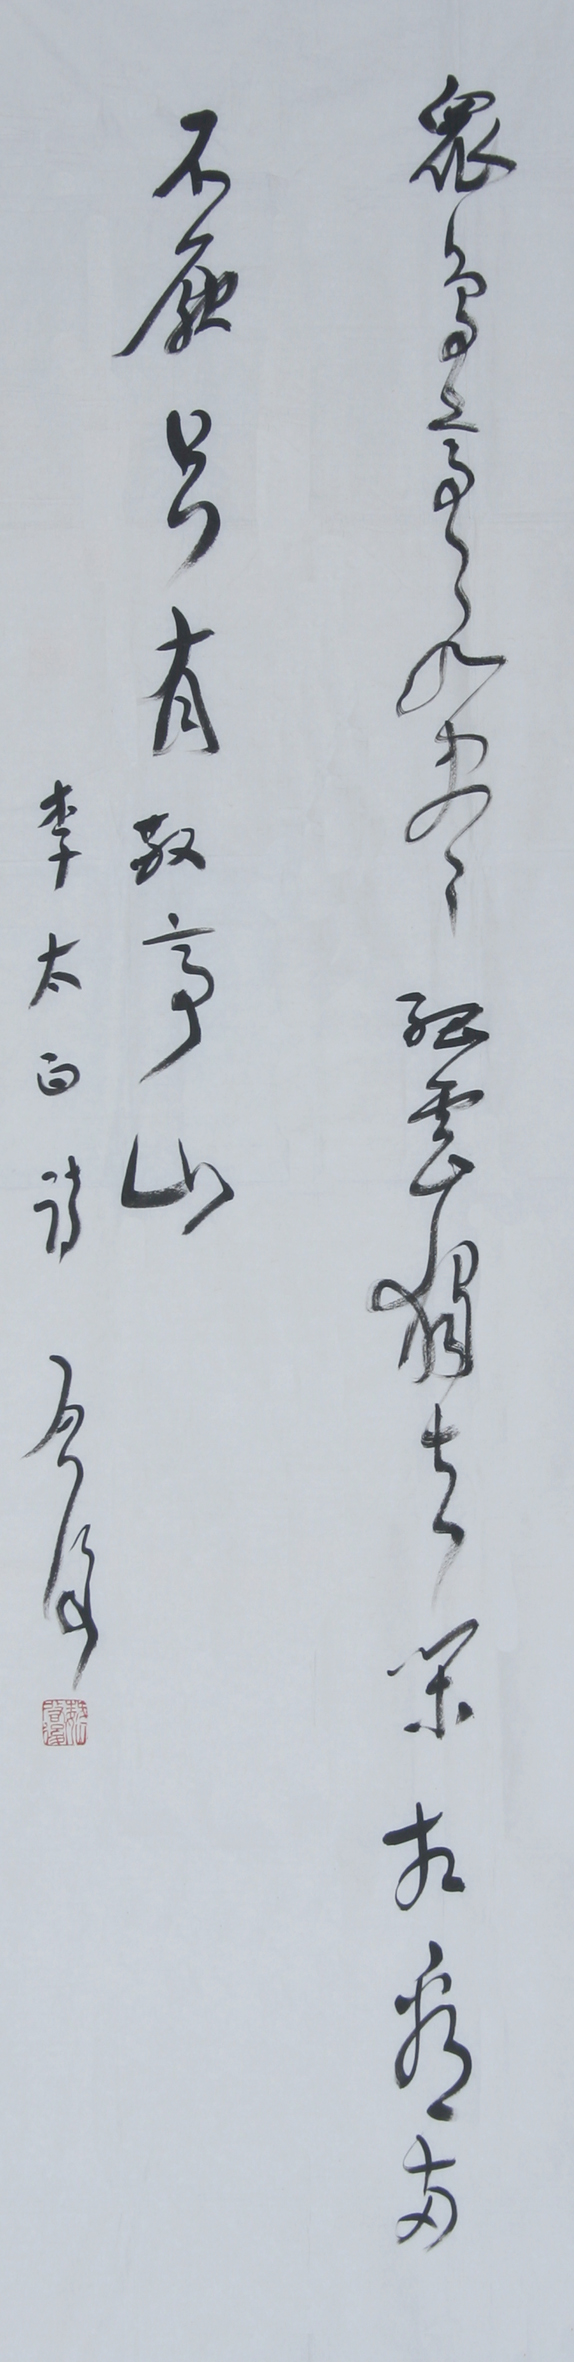 眾鳥高飛盡孤雲獨去閑相看兩
不厭只有敬亭山
李太白詩 啟後
魏啟後